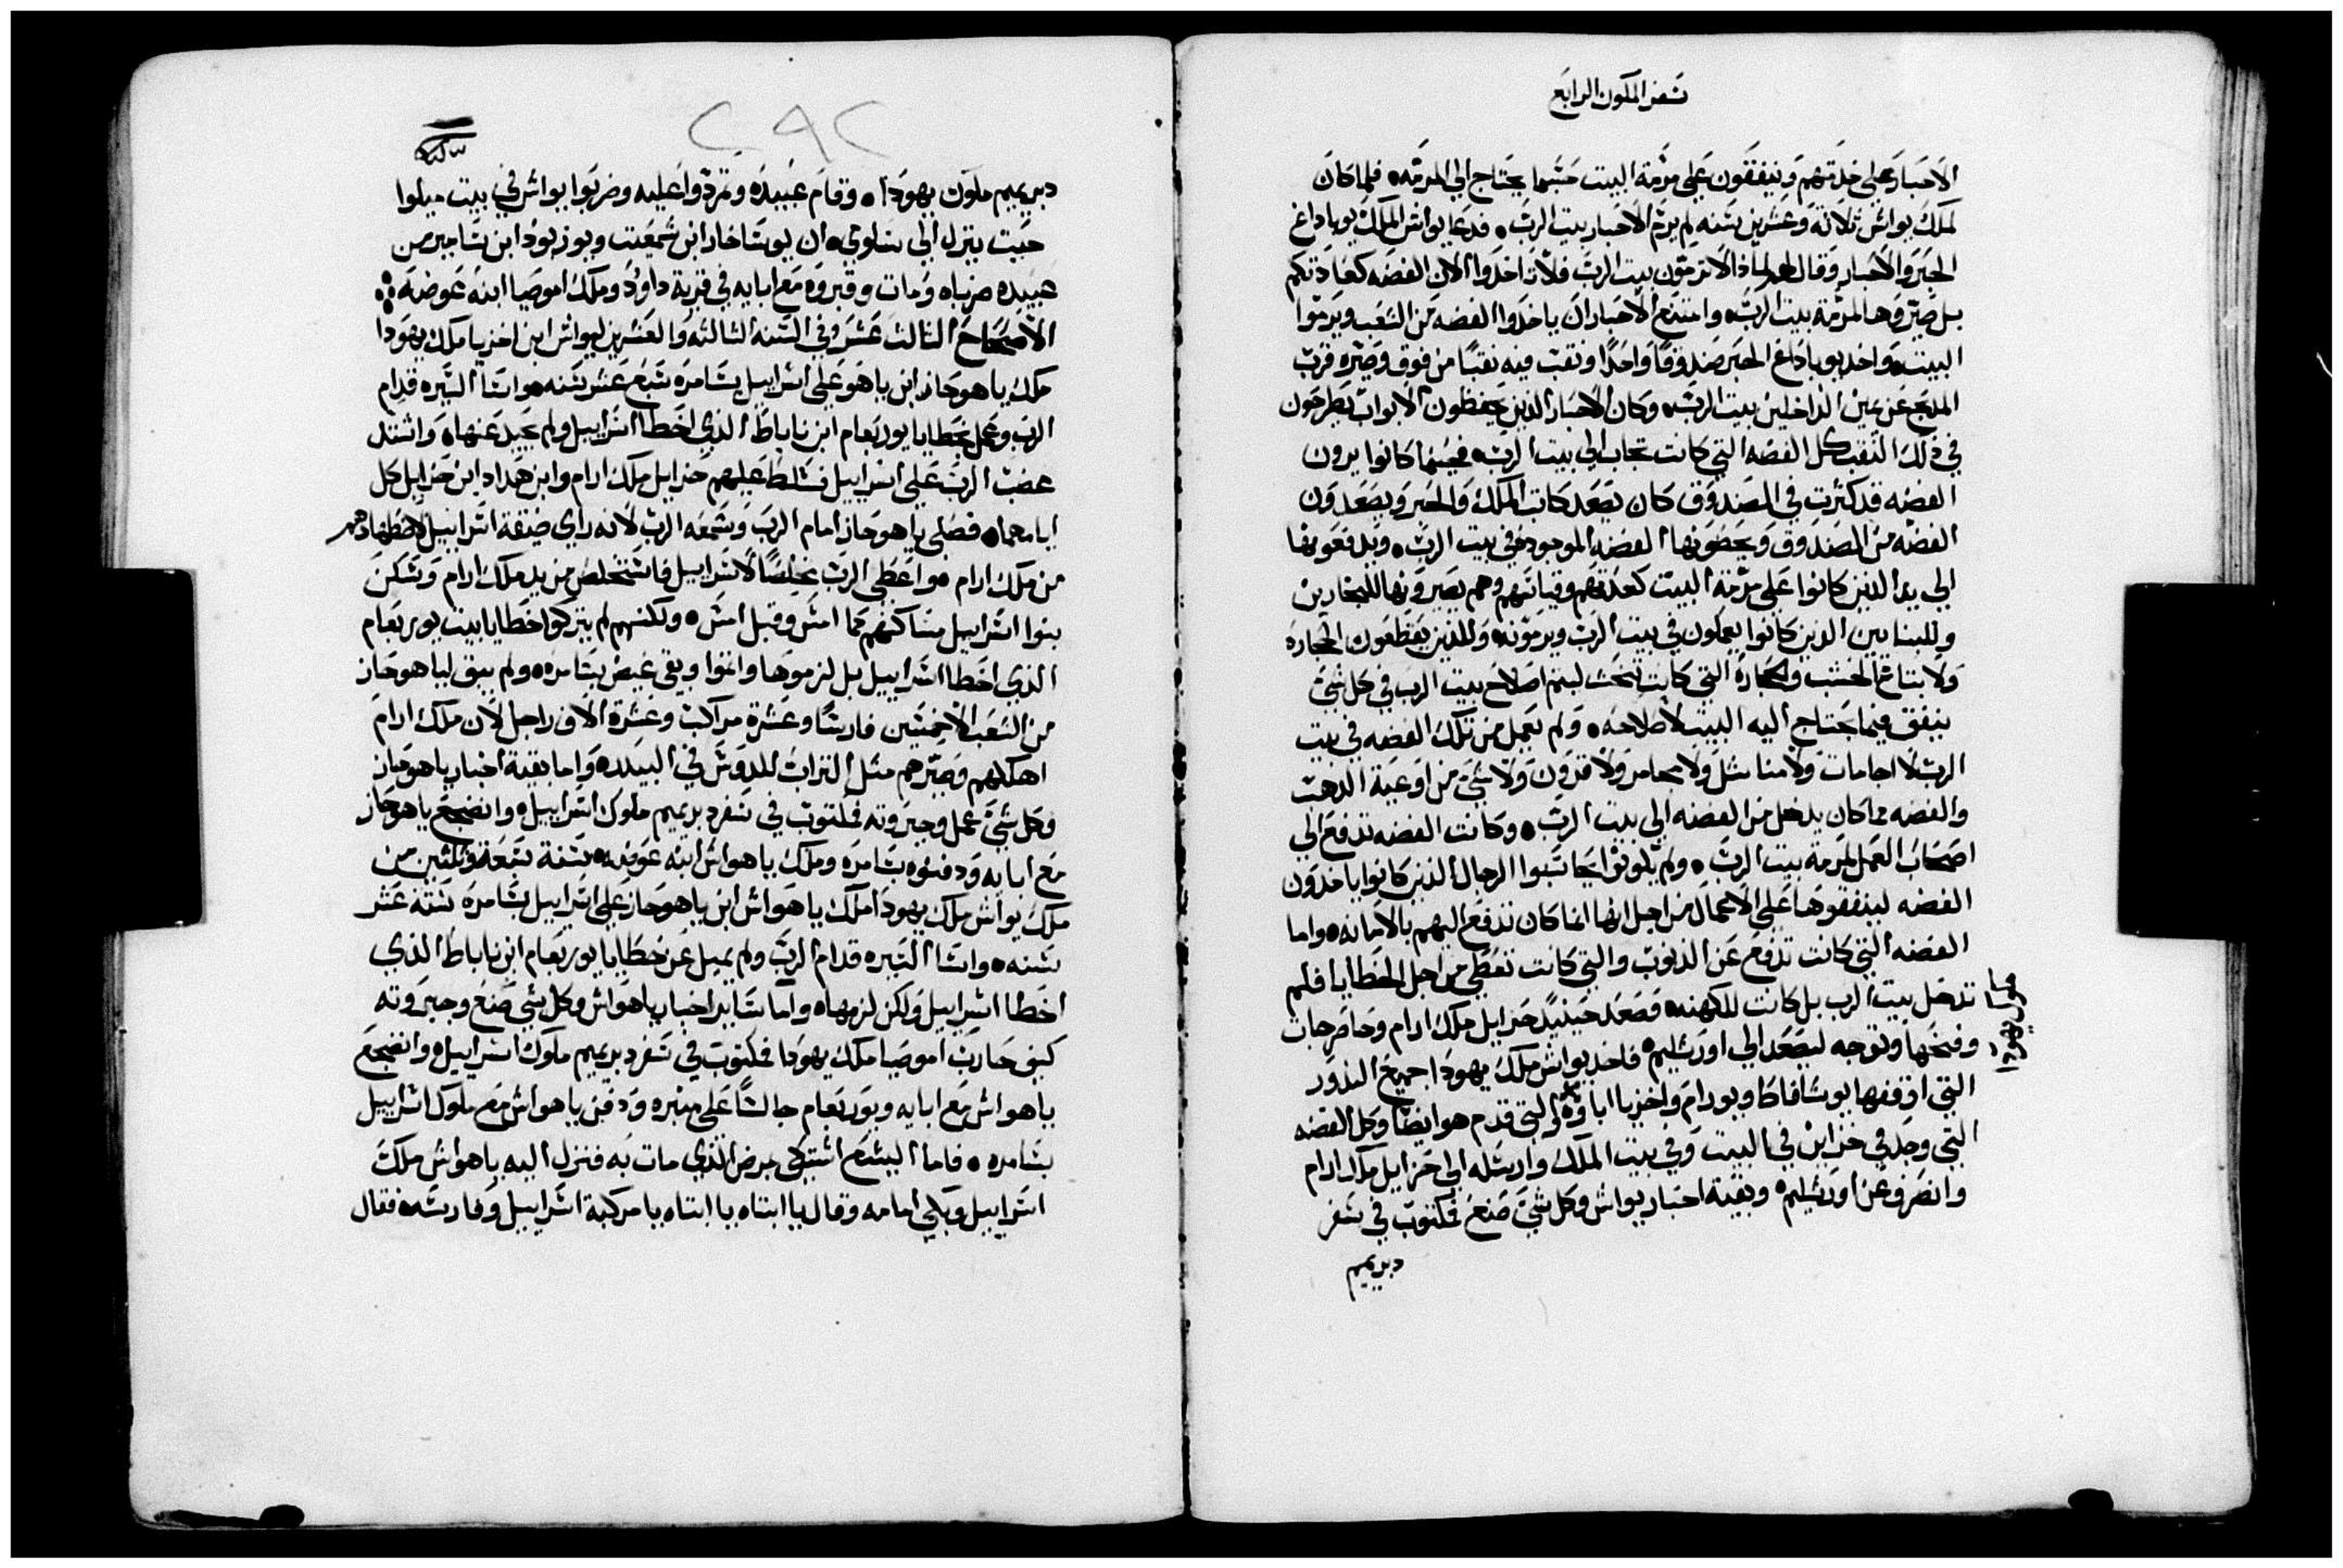 سفر الملوك الرابع
الاحبار على خلتهم وينفقون على مرمة البيت حسبما يحتاج الي المرمه فلما كان
لملك يواش ثلاثة وعشرين سنه لم يرم الاحبار بيت الرب فدعا يواش الملك يوياداغ
الحبر والاحبار وقال لهم لماذا لا ترمون بيت الرب فلا تاخذوا الان الفضه كعادتكم
بل صيروها لمرمة بيت الرب وامتنع الاحبار ان ياخذوا الفضه من الشعب ويرموا
البيت واخذ يوياداغ الحبر صندوقا واحدا ونقب فيه نقبا من فوق وصيره قرب
المذبح عن يمين الداخلين بيت الرب وكان الاحبار الذين يحفظون الابواب يطرحون
في ذلك النقب كل الفضه التي كانت تجاب الي بيت الرب فحينما كانوا يرون
الفضه قد كثرت في الصندوق كان يصعد كاتب الملك والحبر ويصعدون
الفضه من الصندوق ويحصونها الفضه الموجوده في بيت الرب ويدفعونها
الي يد الذين كانوا على مرمة البيت كعدتهم وقياتهم وهم يصيرونها للنجارين
وللبنايين الذين كانوا يعملون في بيت الرب ويرمونه وللذين يقطعون الحجاره
ولابتاع الخشب والحجاره التي كانت تنحت ليتم اصلاح بيت الرب في كل شي
ينفق فيما يحتاج اليه البيت لاصلاحه ولم يعمل من تلك الفضه في بيت
الرب لا اجامات ولا مناشل ولا مجامر ولا قرون ولا شي من اوعية الذهب
والفضه مما كان يدخل من الفضه الي بيت الرب وكانت الفضه تدفع الي
اصحاب العمل لمرمة بيت الرب ولم يكونوا يحاسبوا الرجال الذين كانوا ياخذون
الفضه لينفقوها على الاعمال من اجل انها انما كان تدفع اليهم بالامانه واما
الفضه التي كانت تدفع عن الذنوب والتي كانت تعطي من اجل الخطايا فلم
تدخل بيت الرب بل كانت للكهنه فصعد حينيذ حزايل ملك ارام وحاصر جات
وفتحها وتوجه ليصعد الي اورشليم فاخذ يواش ملك يهودا جميع النذور
التي اوقفها يوشافاط ويورام واخزيا اباوه والتي قدم هو ايضا وكل الفضه
التي وجد في خزاين في البيت وفي بيت الملك وارسله الي حزايل ملك ارام
وانصرف عن اورشليم وبقية اخبار يواش وكل شي صنع فمكتوب في سفر
دبريميم
٢٩٢
دبريميم ملوك يهودا وقام عبيده وتمردوا عليه وضربوا يواش في بيت ميلوا
حيث ينزل الي سلوي ان يوشاخار ابن شمعت ويوزبود ابن شامير من
عبيده ضرباه ومات وقبروه مع ابايه في قرية داوود وملك اموصيا ابنه عوضه
الاصحاح الثالث عشر وفي السنه الثالثه والعشرين ليواش ابن اخزيا ملك يهودا
ملك ياهوحاز ابن ياهو على اسراييل بشامره سبع عشر سنه واسا السيره قدام
الرب وعمل بخطايا يوربعام ابن ناباط الذي اخطا اسراييل ولم يحيد عنها واشتد
غضب الرب على اسراييل فسلط عليهم حزايل ملك ارام وابن هداد ابن حزايل كل
ايامهما فصلي ياهوحاز امام الرب وسمعه الرب لانه راي ضيقة اسراييل لاضطهادهم
من ملك ارام واعطي الرب مخلصا لاسراييل فاستخلص من يد ملك ارام وسكن
بنوا اسراييل مساكنهم كما امس وقبل امس ولكنهم لم يتركوا خطايا بيت يوربعام
الذي اخطا اسراييل بل لزموها واتموا وبقي غيض بشامره ولم يبق لياهوحاز
من الشعب الا خمسين فارسا وعشرة مراكب وعشرة الاف راجل لان ملك ارام
اهلكهم وصيرهم مثل التراب للدوس في البيدر واما بقية اخبار ياهوحاز
وكل شي عمل وجبروته فمكتوب في سفر دبريميم ملوك اسراييل وانضجع ياهوحاز
مع ابايه ودفنوه بشامره وملك ياهواش ابنه عوضه سنة سبعة وثلثين من
ملك يواش ملك يهودا ملك ياهواش ابن ياهوحاز على اسراييل بشامره ستة عشر
سنه واسا السيره قدام الرب ولم يميل عن خطايا يوربعام ابن ناباط الذي
اخطا اسراييل ولكن لزمها واما ساير اخبار ياهواش وكل شي صنع وجبروته
كيف حارب اموصيا ملك يهودا فمكتوب في سفر دبريميم ملوك اسراييل وانضجع
ياهواش مع ابايه ويوربعام جالسا على منبره ودفن ياهواش مع ملوك اسراييل
بشامره فاما اليشع اشتكي مرض الذي مات به فنزل اليه ياهواش ملك
اسراييل وبكي امامه وقال يا ابتاه يا ابتاه يا مركبة اسراييل وفارسه فقال